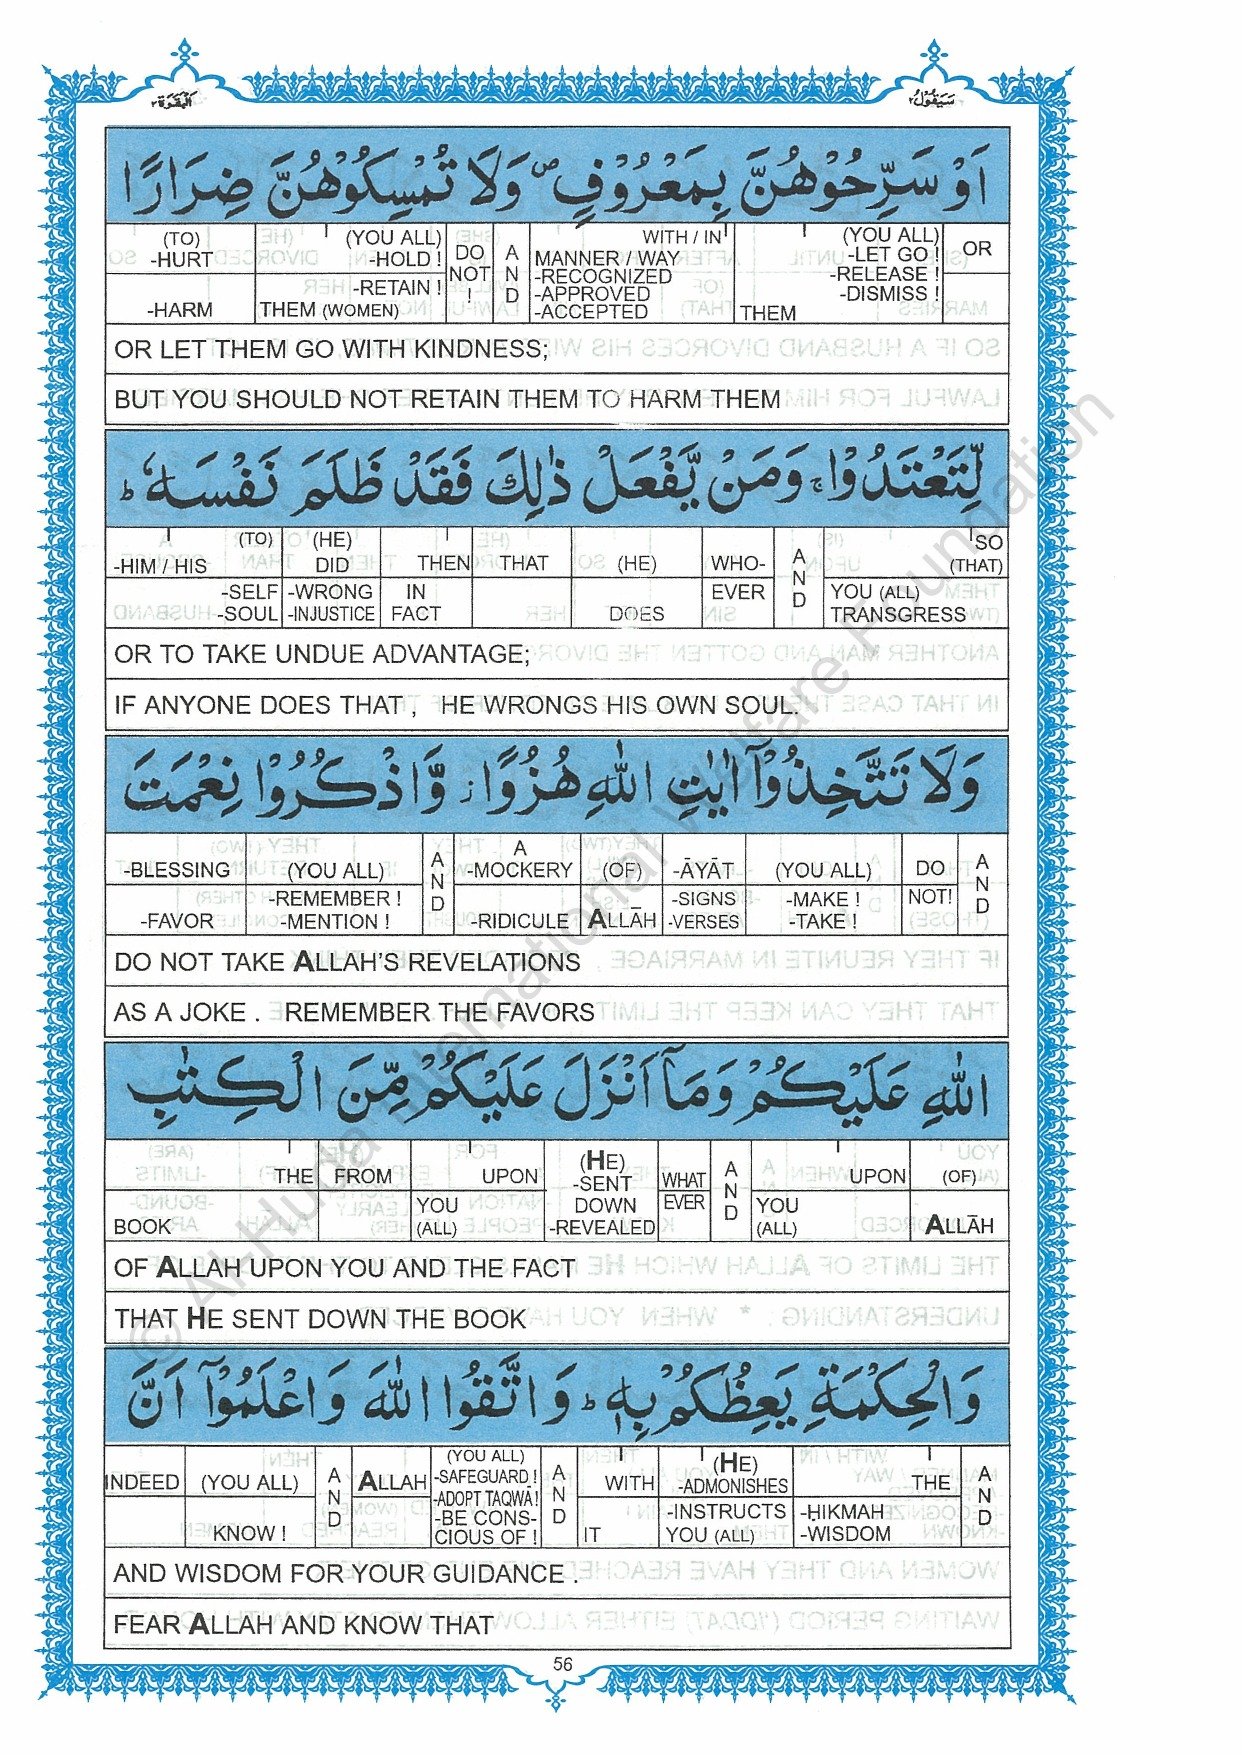 سَيَقُوْلُ ٢
اَلْبَقَرَة ٢
اَوْ سَرِّحُوْهُنَّ بِمَعْرُوْفٍ ۪ وَلَا تُمْسِكُوْهُنَّ ضِرَارًا
OR (YOU ALL) -LET GO ! -RELEASE ! -DISMISS ! THEM WITH / IN MANNER / WAY -RECOGNIZED -APPROVED -ACCEPTED AND DO NOT ! (YOU ALL) -HOLD ! -RETAIN ! THEM (WOMEN) (TO) -HURT -HARM
OR LET THEM GO WITH KINDNESS;
BUT YOU SHOULD NOT RETAIN THEM TO HARM THEM
لِّتَعْتَدُوْا ۚ وَمَنْ يَّفْعَلْ ذٰلِكَ فَقَدْ ظَلَمَ نَفْسَهٗ ؕ
SO (THAT) YOU (ALL) TRANSGRESS AND WHO- EVER (HE) DOES THAT THEN IN FACT (HE) DID -WRONG -INJUSTICE (TO) -HIM / HIS -SELF -SOUL
OR TO TAKE UNDUE ADVANTAGE;
IF ANYONE DOES THAT , HE WRONGS HIS OWN SOUL.
وَلَا تَتَّخِذُوْٓا اٰيٰتِ اللّٰهِ هُزُوًا ز وَّاذْكُرُوْا نِعْمَتَ
AND DO NOT! (YOU ALL) -MAKE ! -TAKE ! -ĀYĀT -SIGNS -VERSES (OF) ALLĀH A -MOCKERY -RIDICULE AND (YOU ALL) -REMEMBER ! -MENTION ! -BLESSING -FAVOR
DO NOT TAKE ALLAH'S REVELATIONS
AS A JOKE . REMEMBER THE FAVORS
اللّٰهِ عَلَيْكُمْ وَمَآ اَنْزَلَ عَلَيْكُمْ مِّنَ الْكِتٰبِ
(OF) ALLĀH UPON YOU (ALL) AND WHAT EVER (HE) -SENT DOWN -REVEALED UPON YOU (ALL) FROM THE BOOK
OF ALLAH UPON YOU AND THE FACT
THAT HE SENT DOWN THE BOOK
وَالْحِكْمَةِ يَعِظُكُمْ بِهٖ ؕ وَاتَّقُوا اللّٰهَ وَاعْلَمُوْٓا اَنَّ
AND THE -ḤIKMAH -WISDOM (HE) -ADMONISHES -INSTRUCTS YOU (ALL) WITH IT AND (YOU ALL) -SAFEGUARD ! -ADOPT TAQWĀ! -BE CONS- CIOUS OF ! ALLAH AND (YOU ALL) KNOW ! INDEED
AND WISDOM FOR YOUR GUIDANCE .
FEAR ALLAH AND KNOW THAT
56
© Al-Huda International Welfare Foundation